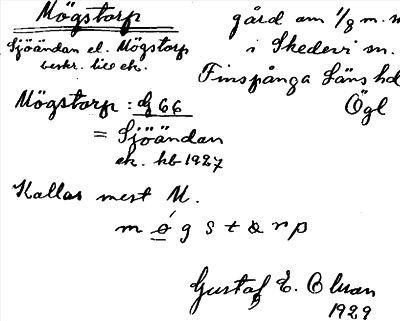 Mögstorp gård om 1/8 m. m
Sjöändan el. Mögstorp i Skedevi sn.
beskr. till ek. Finspånga Läns hd
Mögstorp : dj 66 Ögl
= Sjöändan
ek. kb 1927
Kallas mest M.
m ǿ g s t å r p
Gustaf E. Olsson
1929